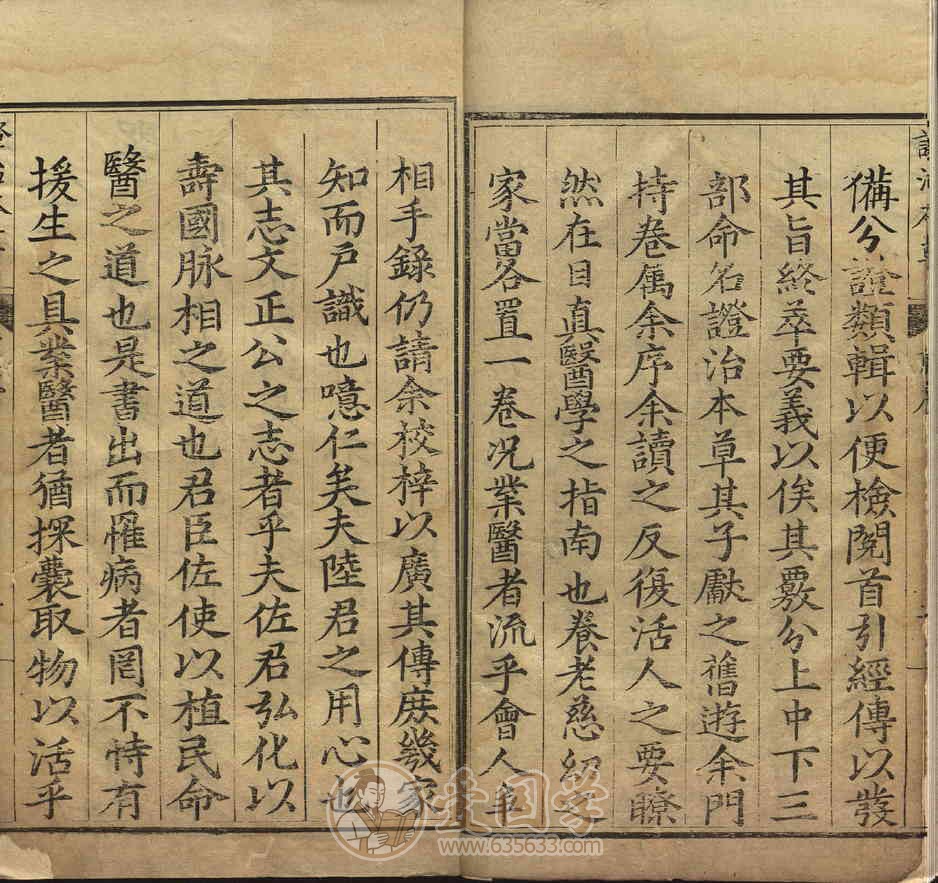 備分證類輯以便檢閱首引經傳以發
其旨終萃要義以俟其覈分上中下三
部命名證治本草其子獻之舊遊余門
持卷属余序余讀之反復活人之要瞭
然在目真醫學之指南也養老慈幼之
家當各置一卷况業醫者流乎會人
相手錄仍請余校梓以廣其傳庻幾家
知而戶識也噫仁矣夫陸君之用心也
其志文正公之志者乎夫佐君弘化以
壽國脉相之道也君臣佐使以植民命
醫之道也是書出而罹病者罔不恃有
援生之具業醫者猶探囊取物以活乎
愛国学
www.635633.com